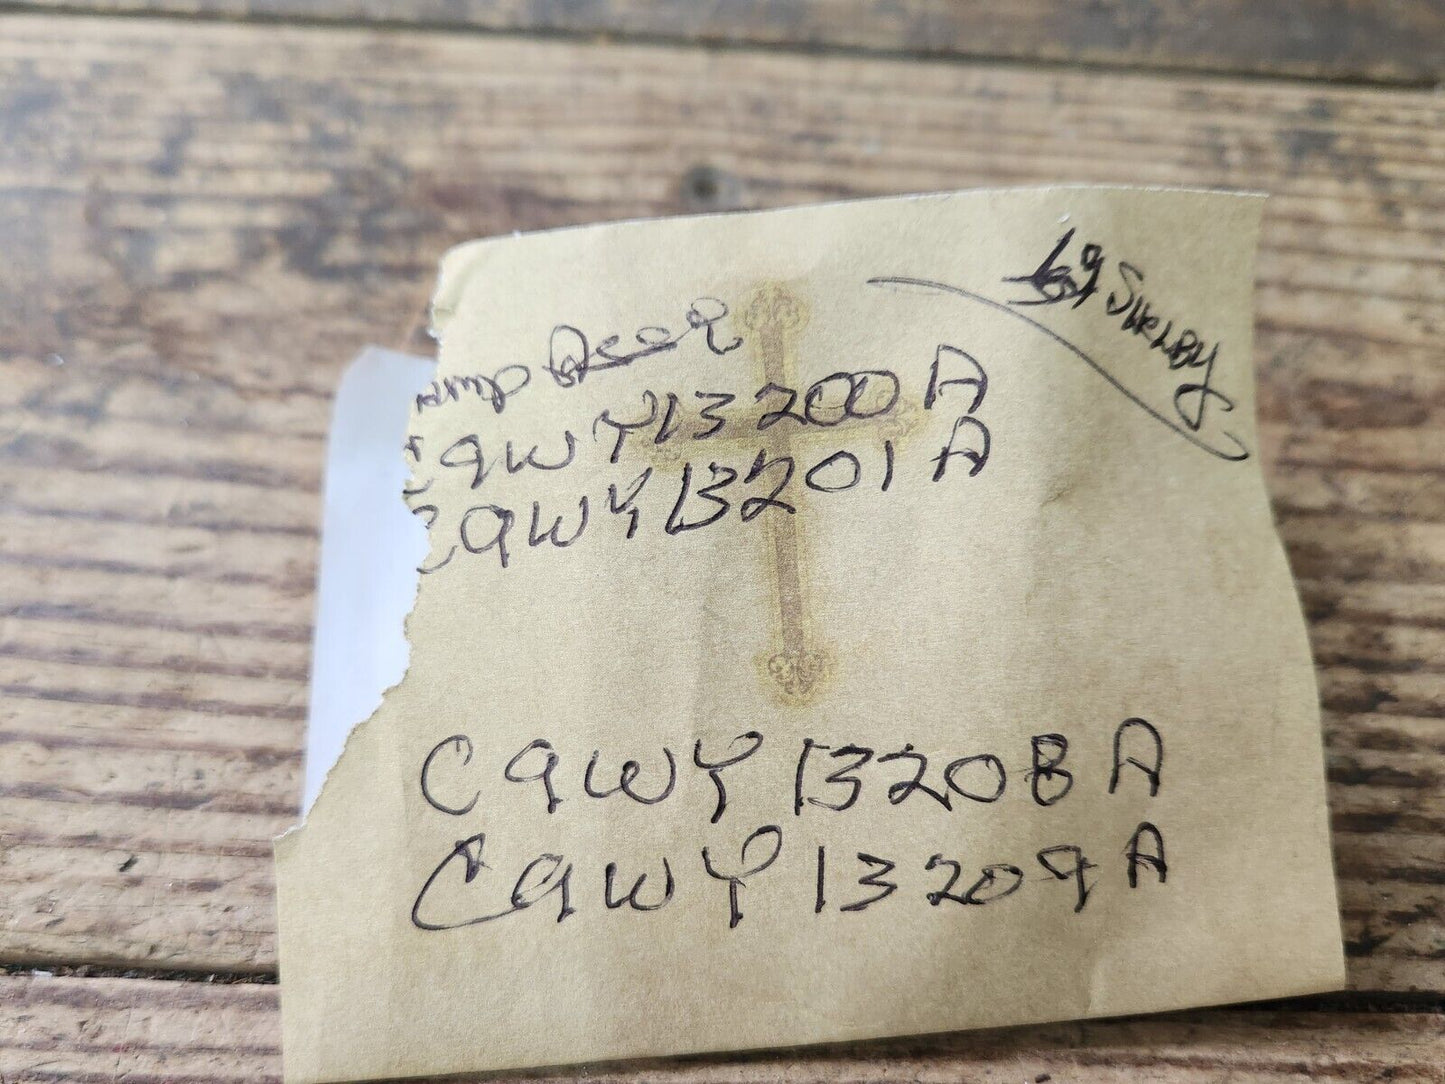 69 SHELBY
C9WY13200A
C9WY13201A
C9WY13208A
C9WY13209A